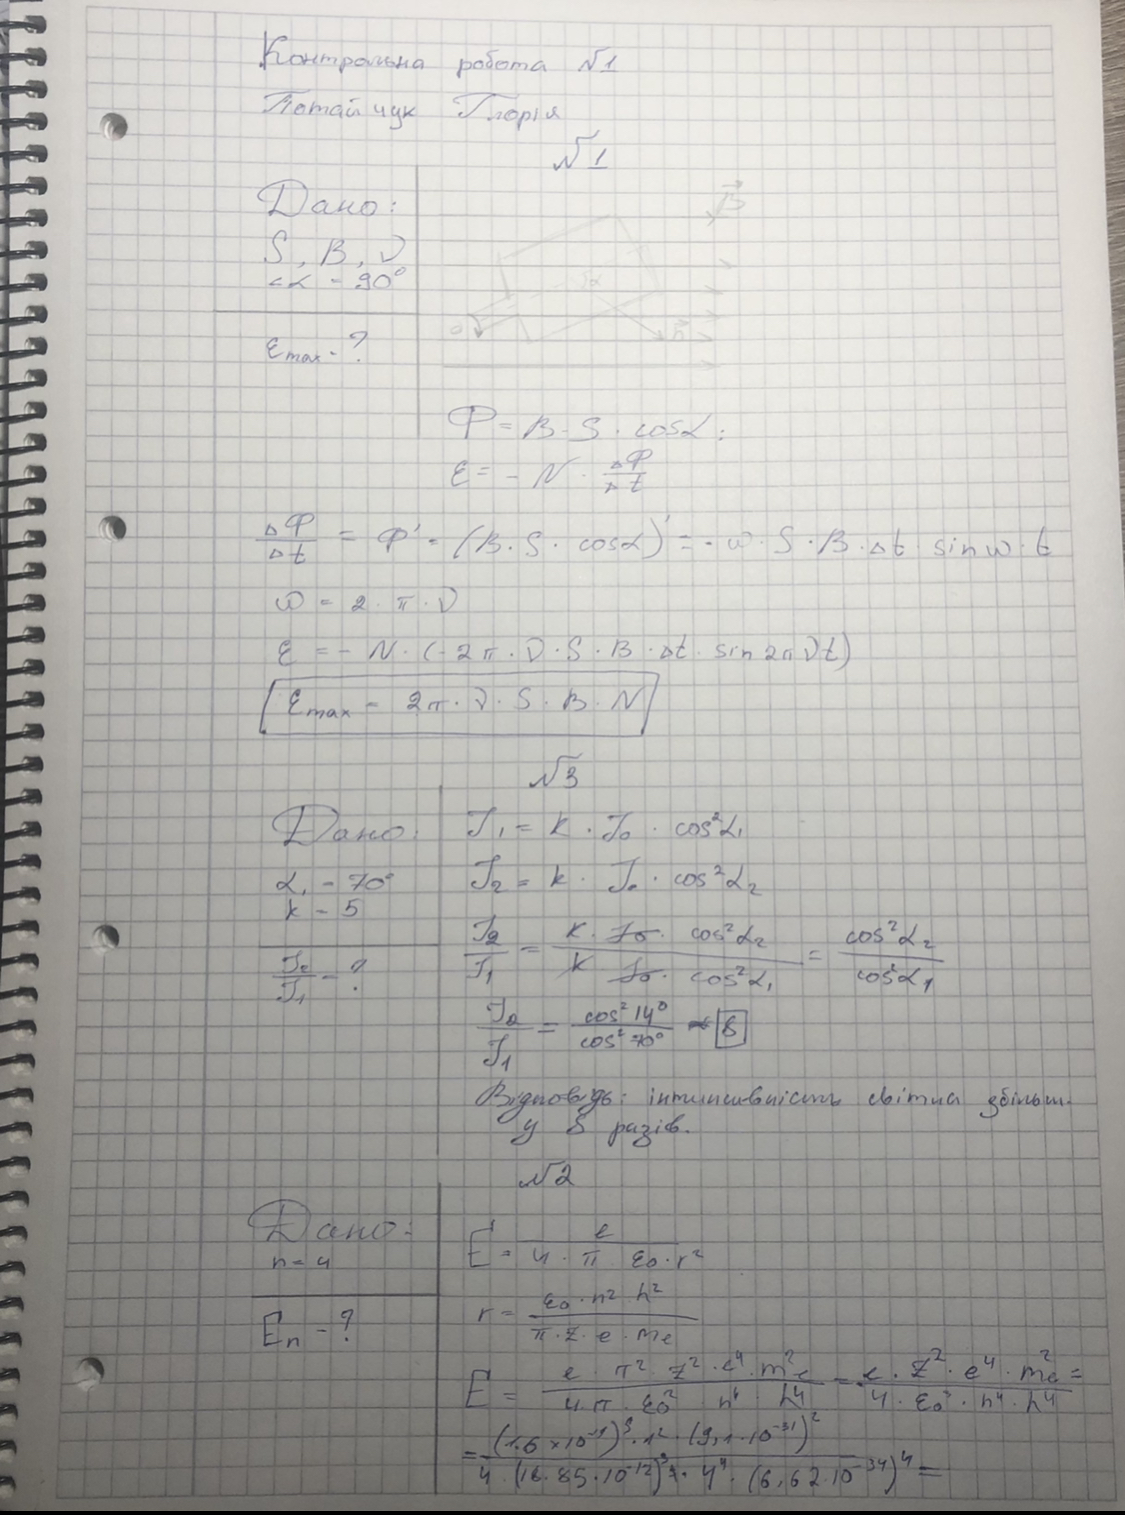 Контрольна робота №1
Потайчук Глорія
№1
Дано:
S, B, ν
∠α = 90°
Ɛmax - ?
B
α
n
O
Ф = B · S · cosα;
Ɛ = - N · ΔФ/Δt
ΔФ/Δt = Ф' = (B · S · cosα)' = - ω · S · B · Δt · sin ω · t
ω = 2 · π · ν
Ɛ = - N · (-2π · ν · S · B · Δt · sin 2πνt)
Ɛmax = 2π · ν · S · B · N
№3
Дано:
α₁ = 70°
k = 5
J₂/J₁ - ?
J₁ = k · J₀ · cos²α₁
J₂ = k · J₀ · cos²α₂
J₂/J₁ = k · J₀ · cos²α₂ / k · J₀ · cos²α₁ = cos²α₂/cos²α₁
J₂/J₁ = cos²14°/cos²70° ≈ 8
Відповідь: інтинсивність світла збільш.
у 8 разів.
№2
Дано:
n = 4
En - ?
E = e / 4 · π ε₀ · r²
r = ε₀ · n² · h² / π · z · e · me
E = e · π² · z² · e⁴ · m²e / 4 · π · ε₀² n⁴ · h⁴ = e · z² · e⁴ · me² / 4 · ε₀³ · n⁴ · h⁴ =
= (1.6 × 10⁻¹⁹)⁵ · 1² · (9,1 · 10⁻³¹)² / 4 · (18.85 · 10⁻¹²)³ · 4⁴ · (6,62 · 10⁻³⁴)⁴ =